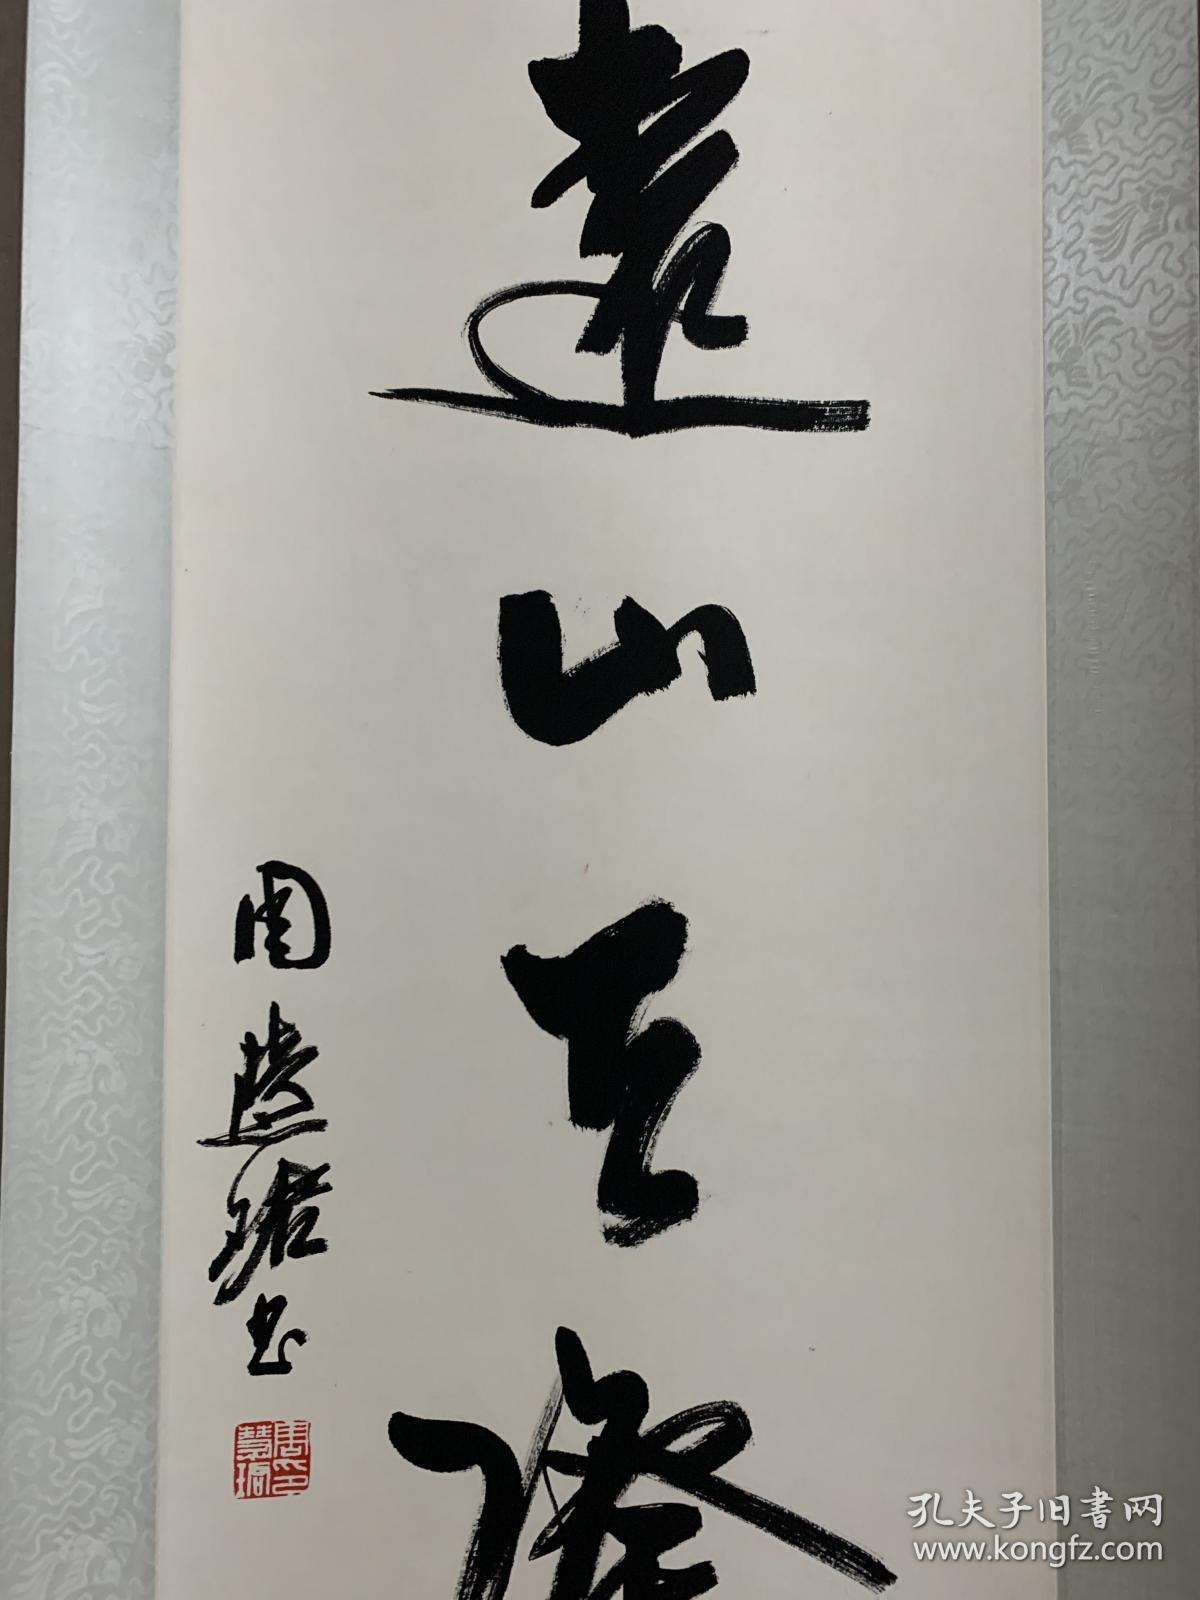 遠山天際
周慧珺书
周印慧珺
孔夫子旧書网
www.kongfz.com